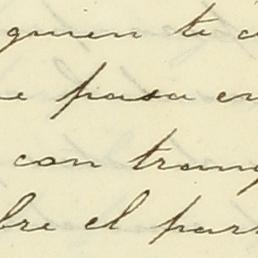 quien te c
e pasa en
con tranq
bre el par